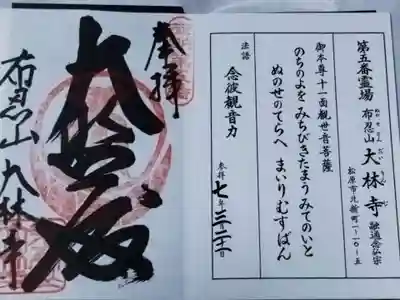 第五番霊場
布忍山 大林寺 融通念仏宗
松原市北新町一ー一〇ー五
御本尊十一面観世音菩薩
のちのよを みちびきたまう みてのいと
ぬのせのてらへ まいりむすばん
法語 念彼観音力
参拝 七年三月
奉拝
大悲殿
布忍山 大林寺